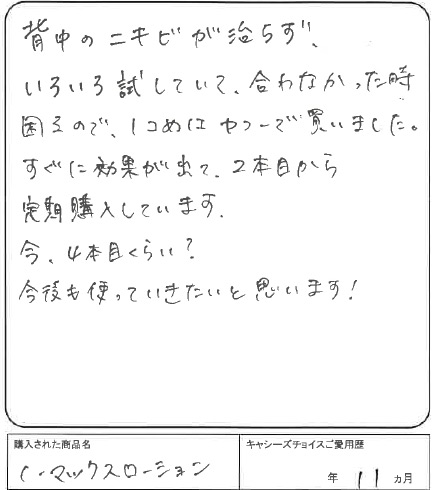 背中のニキビが治らず、
いろいろ試していて、合わなかった時
困るので、1コめはヤフーで買いました。
すぐに効果が出て、2本目から
定期購入しています。
今、4本目くらい?
今後も使っていきたいと思います!
購入された商品名
C-マックスローション
キャシーズチョイスご愛用歴
年 11 ヵ月